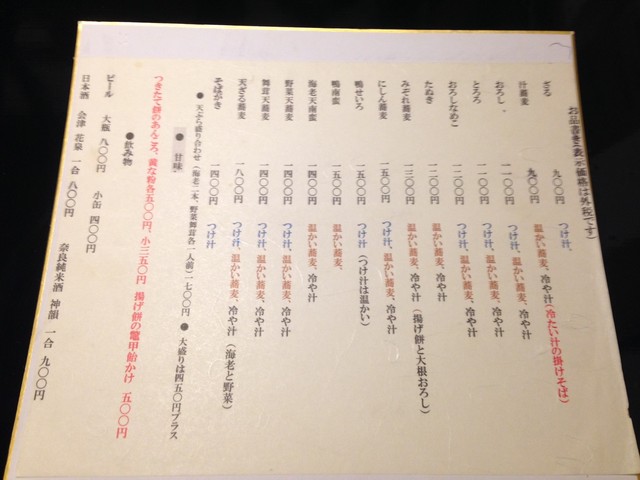 お品書き(表示価格は外税です)
ざる 九〇〇円 つけ汁、
汁蕎麦 九〇〇円 温かい蕎麦、冷や汁(冷たい汁の掛けそば)
おろし、 一一〇〇円 つけ汁、温かい蕎麦、冷や汁
とろろ 一一〇〇円 つけ汁、温かい蕎麦、冷や汁
おろしなめこ 一二〇〇円 つけ汁、温かい蕎麦、冷や汁
たぬき 一二〇〇円 つけ汁、温かい蕎麦、冷や汁
みぞれ蕎麦 一三〇〇円 温かい蕎麦、冷や汁(揚げ餅と大根おろし)
にしん蕎麦 一五〇〇円 つけ汁、温かい蕎麦、冷や汁
鴨せいろ 一五〇〇円 つけ汁(つけ汁は温かい)
鴨南蛮 一五〇〇円 温かい蕎麦、
海老天南蛮 一四〇〇円 温かい蕎麦、冷や汁
野菜天蕎麦 一四〇〇円 つけ汁、温かい蕎麦、冷や汁
舞茸天蕎麦 一四〇〇円 つけ汁、温かい蕎麦、冷や汁
天ざる蕎麦 一八〇〇円 つけ汁、温かい蕎麦、冷や汁(海老と野菜)
そばがき 一四〇〇円 つけ汁
●天ぷら盛り合わせ(海老二本、野菜舞茸各一人前)一七〇〇円 ●大盛りは四五〇円プラス
●甘味、
つきたて餅のあんころ、黄な粉各五〇〇円、小三五〇円 揚げ餅の鼈甲飴かけ 五〇〇円
●飲み物
ビール 大瓶 九〇〇円 小缶 四〇〇円
日本酒 会津 花泉 一合 八〇〇円 奈良純米酒 神韻 一合 九〇〇円